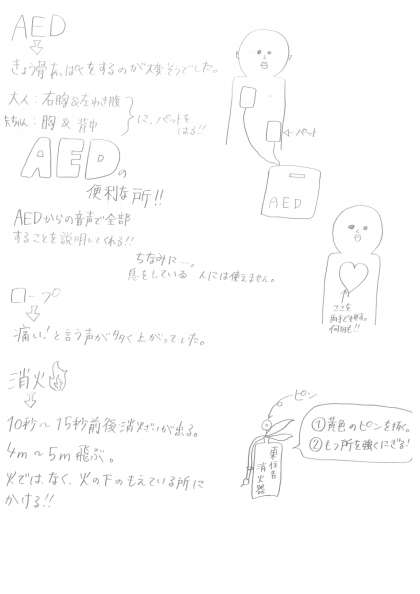 AED
きょう骨あっぱくをするのが大変そうでした。
大人：右胸&左わき腹
赤ちゃん：胸 & 背中
に、パットをはる!!
パット
AEDの
便利な所!!
AED
AEDからの音声で全部
することを説明してくれる!!
ちなみに…。
息をしている 人には使えません。
ここを
両手で押す。
何回も!!
ロープ
痛い！と言う声が多く上がってました。
消火
ピン
10秒～15秒前後消火ざいが出る。
①黄色のピンを抜く。
②もつ所を強くにぎる!
4m～5m飛ぶ。
消火器
火では、なく、火の下のもえている所に
かける!!